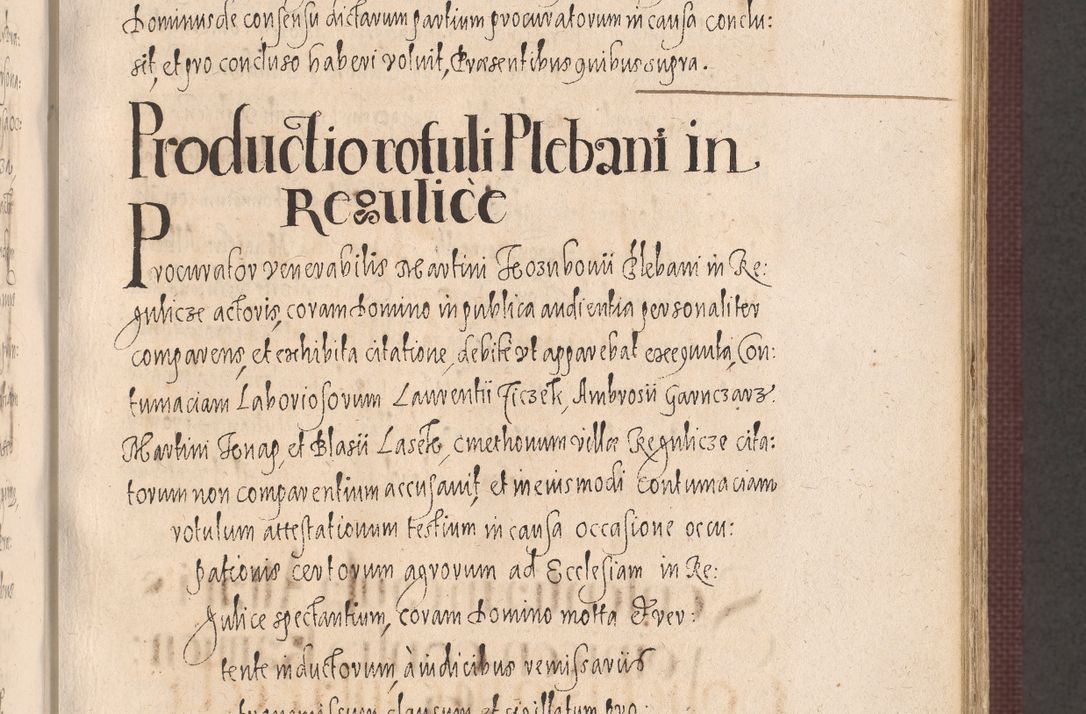 Dominus de consensu dictarum partium procuratorum in causa conclu:
sit, et pro concluso haberi voluit, Praesentibus quibus supra.
Productio rotuli Plebani in
Regulicze
Procurator venerabilis Martini Plebani in Re:
gulicze actoris, coram Domino in publica audientia personaliter
comparens, et exhibita citatione, debite ut apparebat exequuta, Con:
tumaciam Laboriosorum Laurentii Ticzek, Ambrosii Garnczarz
Martini et Blasii cmethonum villæ Regulicze cita:
torum non comparentium accusavit, et in eiusmodi contumaciam
rotulum attestationum testium in causa occasione occu:
pationis certorum agrorum ad Ecclesiam in Re:
gulice spectantium, coram Domino mota et ver:
tente inductorum, à iudicibus remissariis
transmissum clausum et sigillatum pro: